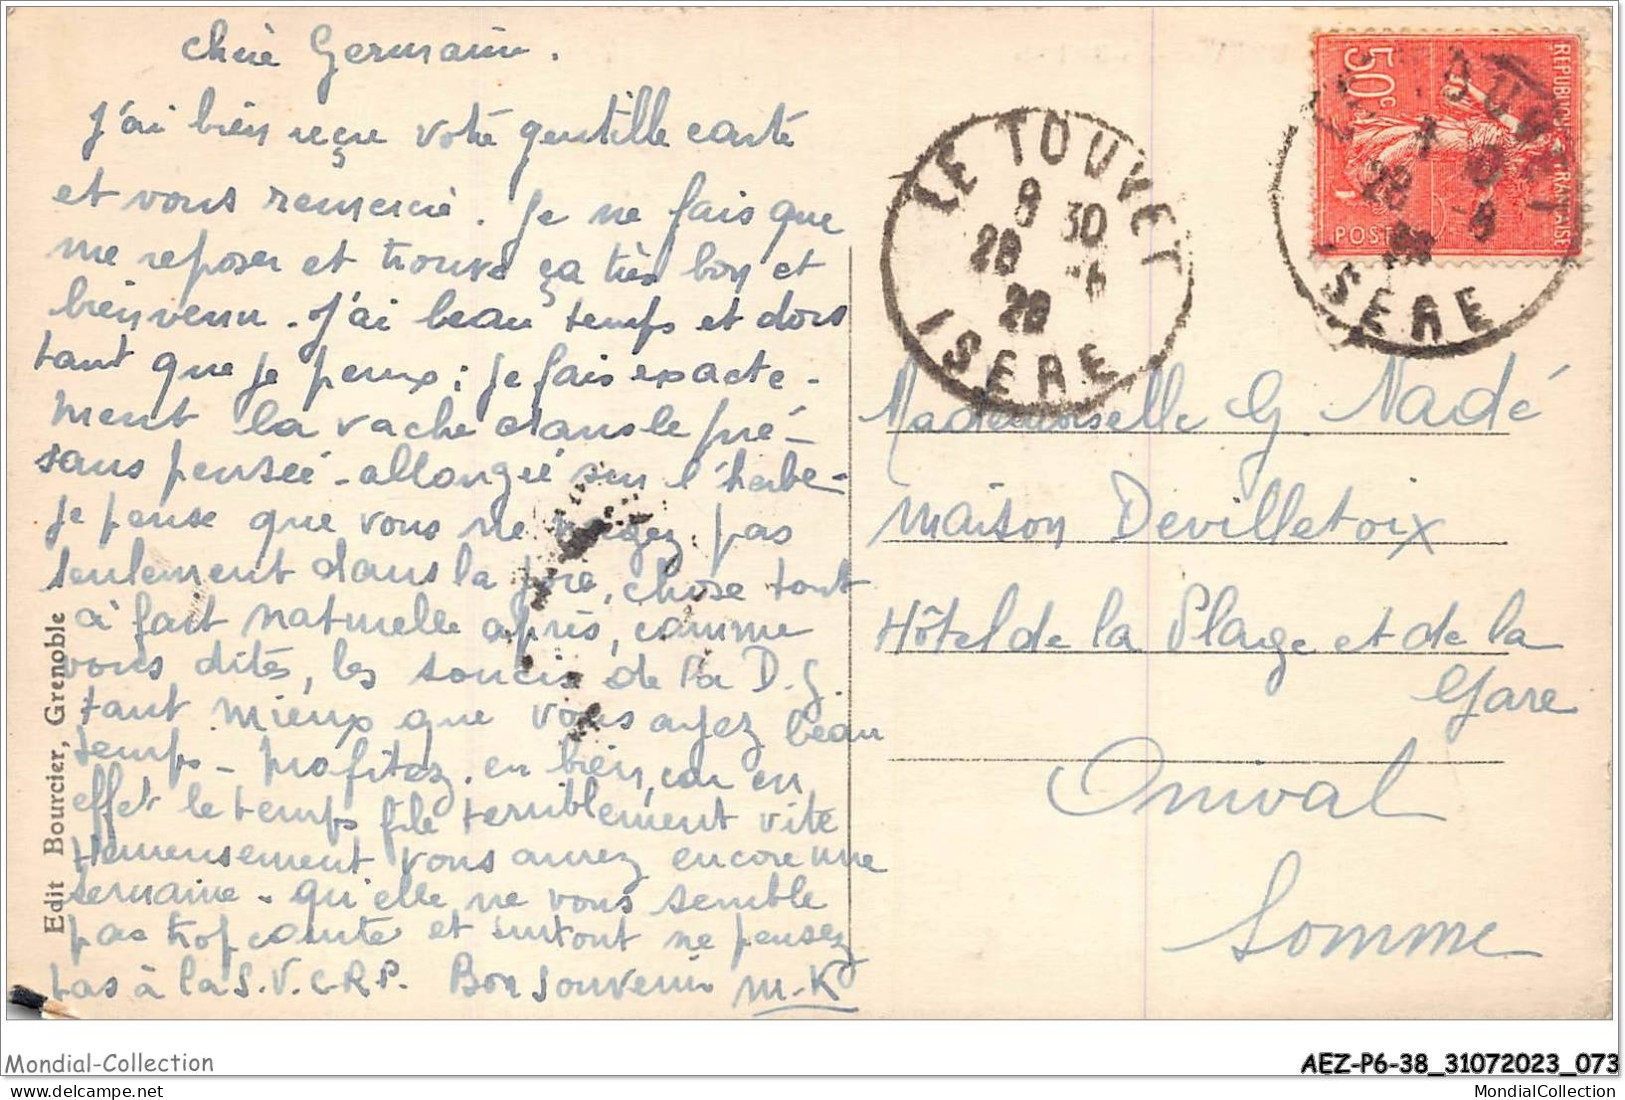 chère Germaine.
J'ai bien reçu votre gentille carte
et vous remercie. Je ne fais que
me reposer et trouve ça très bon et
bienvenu. J'ai beau temps et dors
tant que je peux; je fais exacte-
ment la vache dans le pré -
sans pensée - allongée sur l'herbe -
je pense que vous ne nagez pas
seulement dans la joie, chose tout
à fait naturelle après, comme
vous dites, les soucis de la D.G.
tant mieux que vous ayez beau
temps - profitez en bien, car en
effet le temps file terriblement vite
Heureusement vous aurez encore une
semaine - qu'elle ne vous semble
pas trop courte et surtout ne pensez
pas à la S.V.C.R.P. Bon souvenir M-K
Edit Bourcier, Grenoble
LE TOUVET
8 30
28
28
ISÈRE
50c
REPUBLIQUE FRANÇAISE
POSTES
ISÈRE
Mademoiselle G. Nadé
maison Devilletoix
Hôtel de la Plage et de la
Gare
Onival
Somme
Mondial-Collection
AEZ-P6-38_31072023_073
MondialCollection